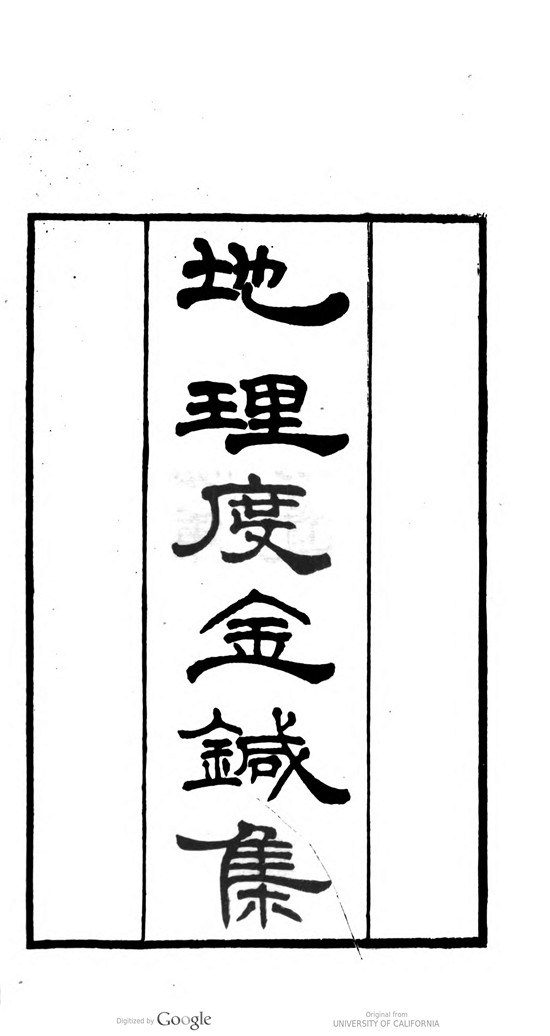 地理度金鍼集
Digitized by Google
Original from
UNIVERSITY OF CALIFORNIA